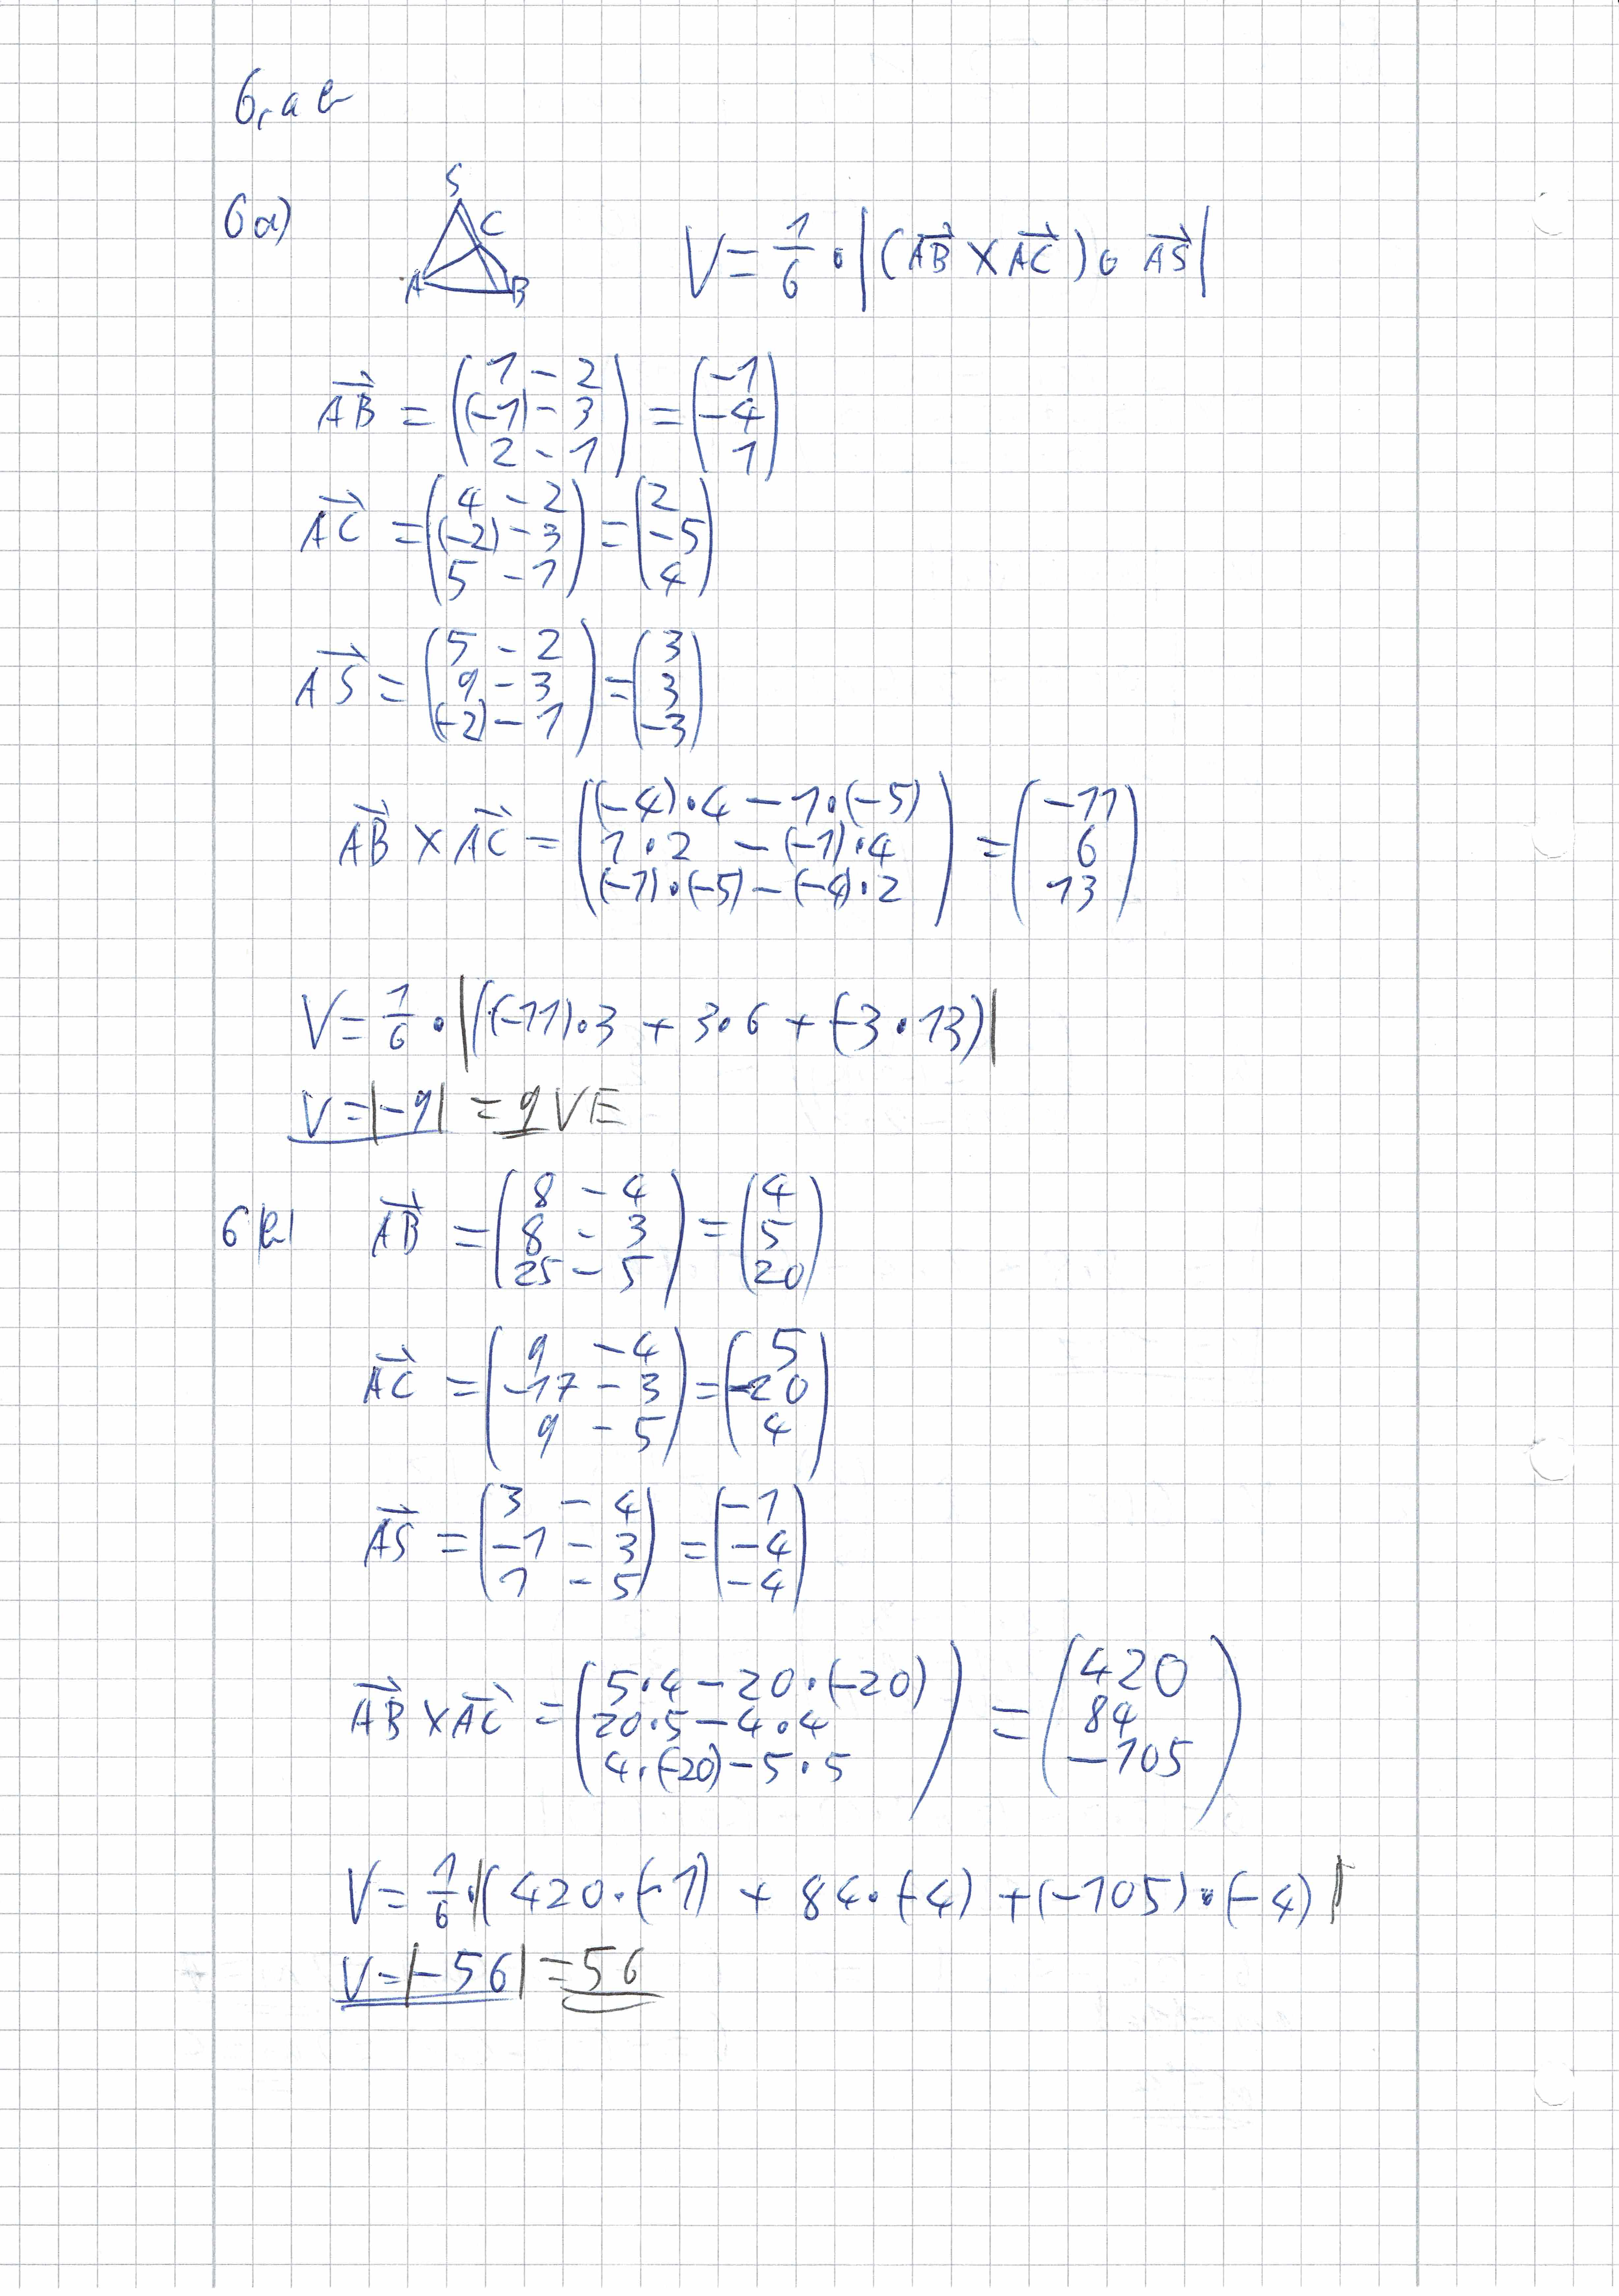 6, a b
6a) S C A B V = 1/6 · |(AB→ × AC→) ∘ AS→|
AB→ = (1 - 2; (-1) - 3; 2 - 1) = (-1; -4; 1)
AC→ = (4 - 2; (-2) - 3; 5 - 1) = (2; -5; 4)
AS→ = (5 - 2; 9 - 3; (-2) - 1) = (3; 3; -3)
AB→ × AC→ = ((-4)·4 - 1·(-5); 1·2 - (-1)·4; (-1)·(-5) - (-4)·2) = (-11; 6; 13)
V = 1/6 · |((-11)·3 + 3·6 + (-3·13)|
V = |-9| = 9 VE
6b) AB→ = (8 - 4; 8 - 3; 25 - 5) = (4; 5; 20)
AC→ = (9 - 4; -17 - 3; 9 - 5) = (5; -20; 4)
AS→ = (3 - 4; -1 - 3; 1 - 5) = (-1; -4; -4)
AB→ × AC→ = (5·4 - 20·(-20); 20·5 - 4·4; 4·(-20) - 5·5) = (420; 84; -105)
V = 1/6 · |(420·(-1) + 84·(-4) + (-105)·(-4)|
V = |-56| = 56